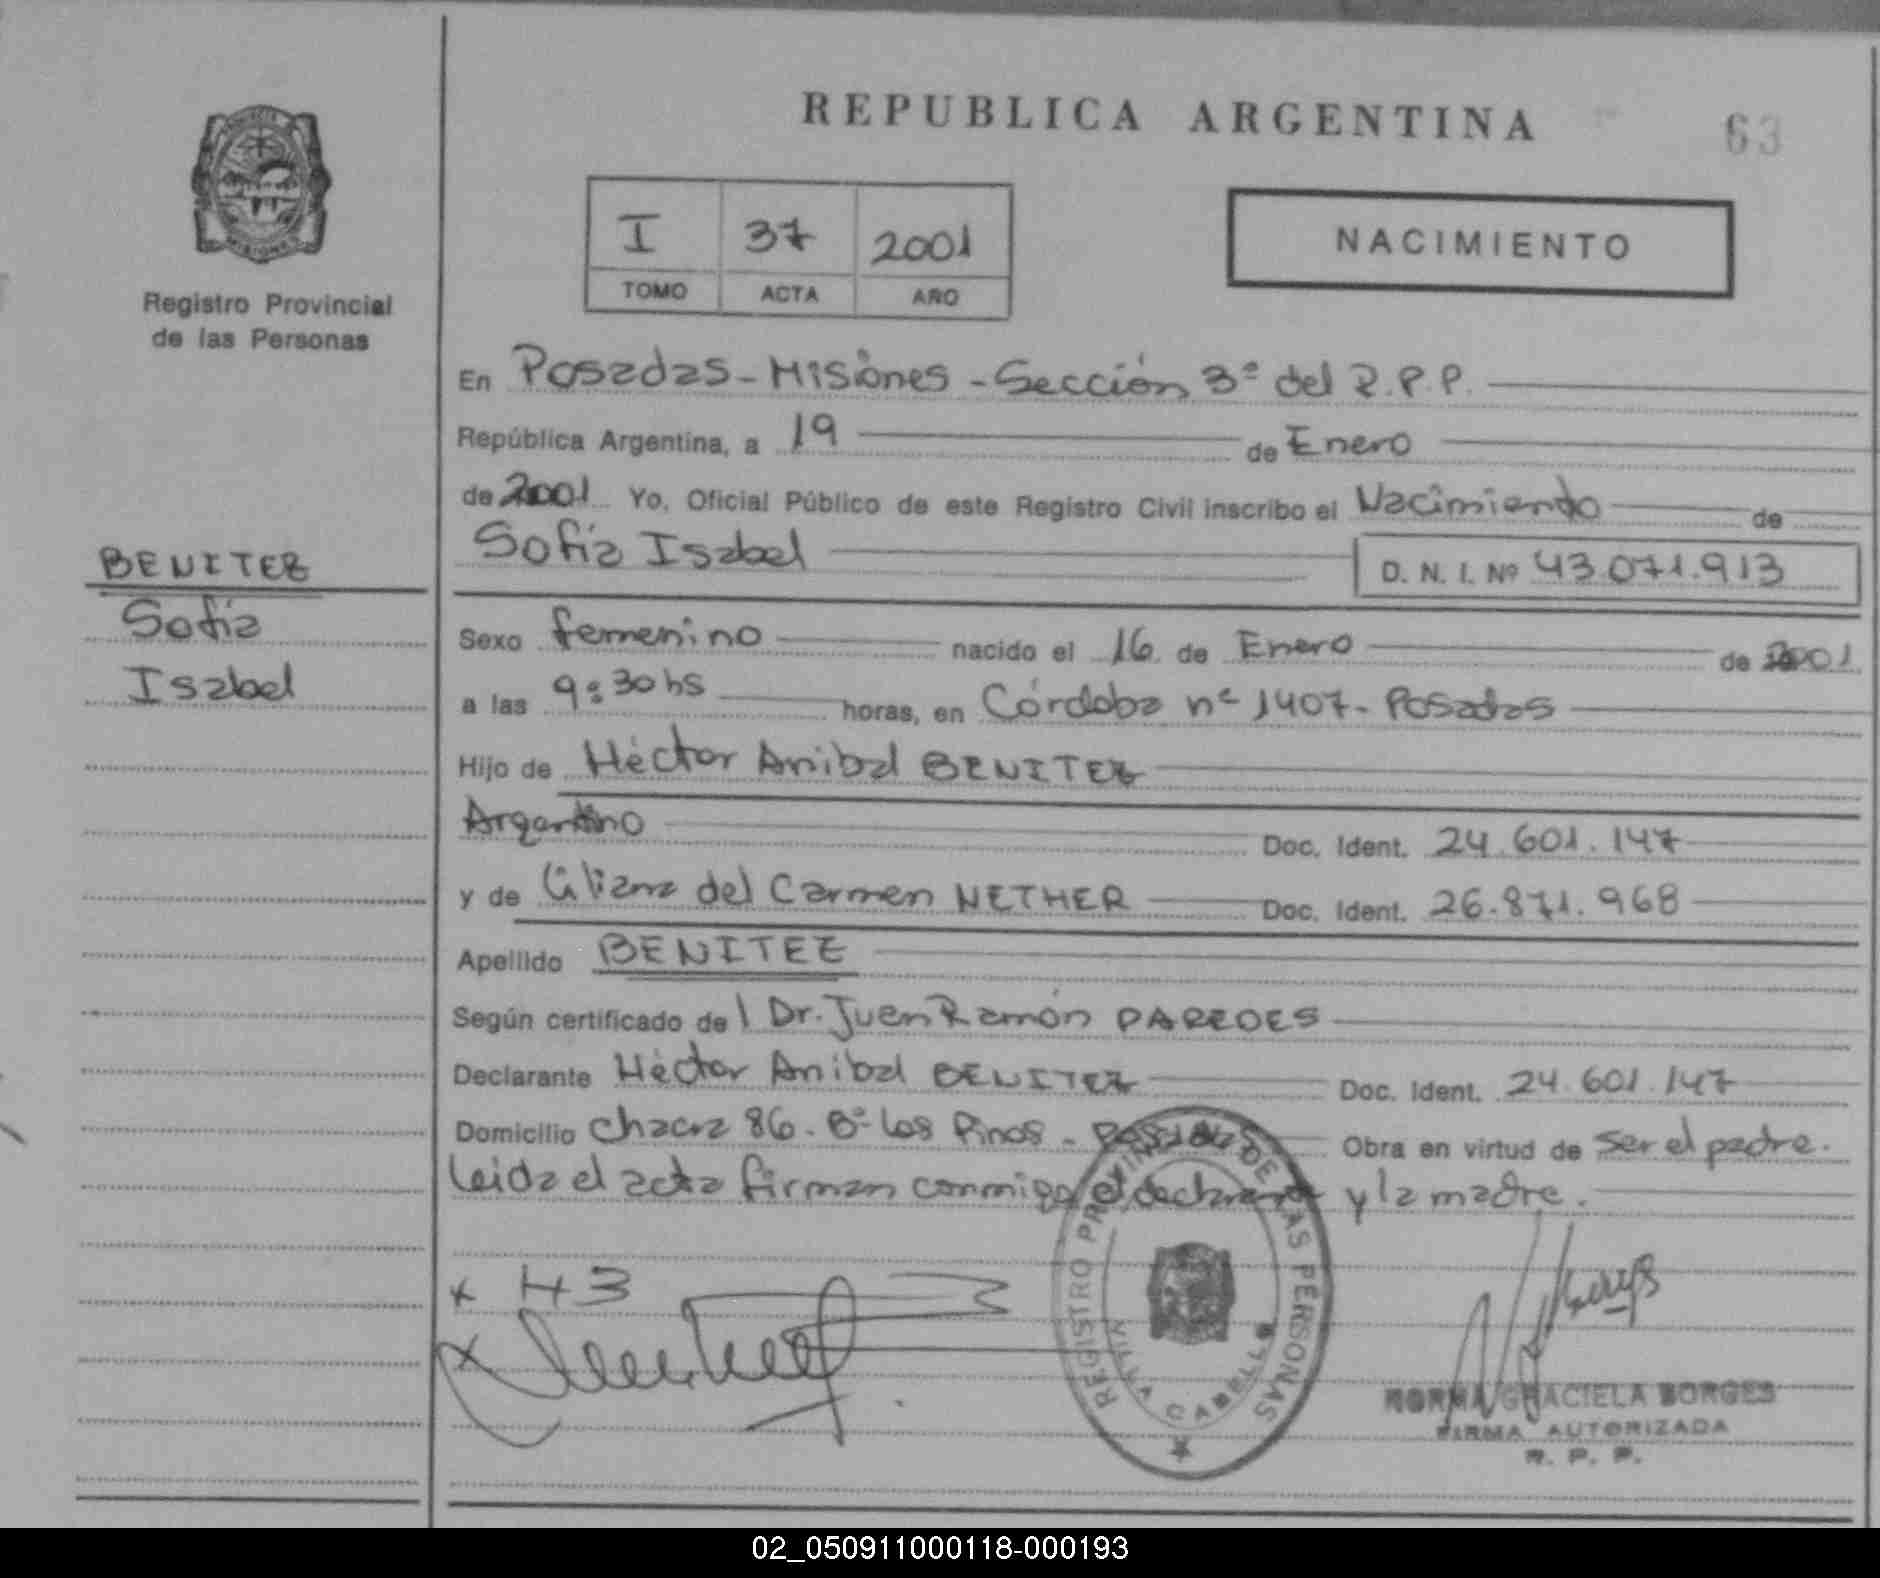 REPUBLICA ARGENTINA
63
I 37 2001
TOMO ACTA AÑO
NACIMIENTO
MISIONES
Registro Provincial
de las Personas
En Posadas - Misiones - Sección 3ª del R.P.P.
República Argentina, a 19 de Enero
de 2001 Yo, Oficial Público de este Registro Civil inscribo el Nacimiento de
Sofia Isabel D. N. I. Nº 43.071.913
BENITEZ
Sofia
Isabel
Sexo femenino nacido el 16 de Enero de 2001
a las 9:30 hs horas, en Córdoba nº 1407 - Posadas
Hijo de Héctor Anibal BENITEZ
Argentino Doc. Ident. 24.601.147
y de Liliana del Carmen NETHER Doc. Ident. 26.871.968
Apellido BENITEZ
Según certificado de l Dr. Juan Ramón PAREDES
Declarante Héctor Anibal BENITEZ Doc. Ident. 24.601.147
Domicilio Chacra 86 - Bº Los Pinos - Posadas Obra en virtud de ser el padre.
Leida el acta firman conmigo el declarante y la madre.
x H3
x
REGISTRO PROVINCIAL DE LAS PERSONAS
VILLA CABELLO
NORMA GRACIELA BORGES
FIRMA AUTORIZADA
R. P. P.
02_050911000118-000193